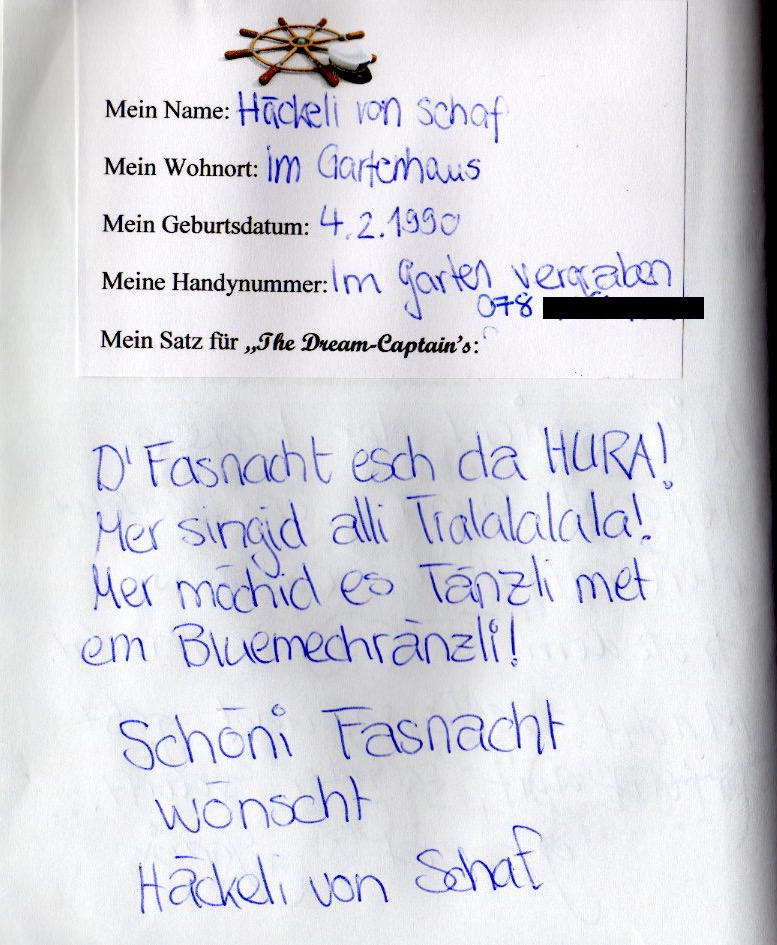 Mein Name: Häckeli von Schaf
Mein Wohnort: im Gartenhaus
Mein Geburtsdatum: 4.2.1990
Meine Handynummer: Im garten vergraben
078
Mein Satz für „The Dream-Captain's:
D'Fasnacht esch da HURA!
Mer singid alli Tralalalala!
Mer möchid es Tänzli met
em Bluemechränzli!
Schöni Fasnacht
wönscht
Häckeli von Schaf